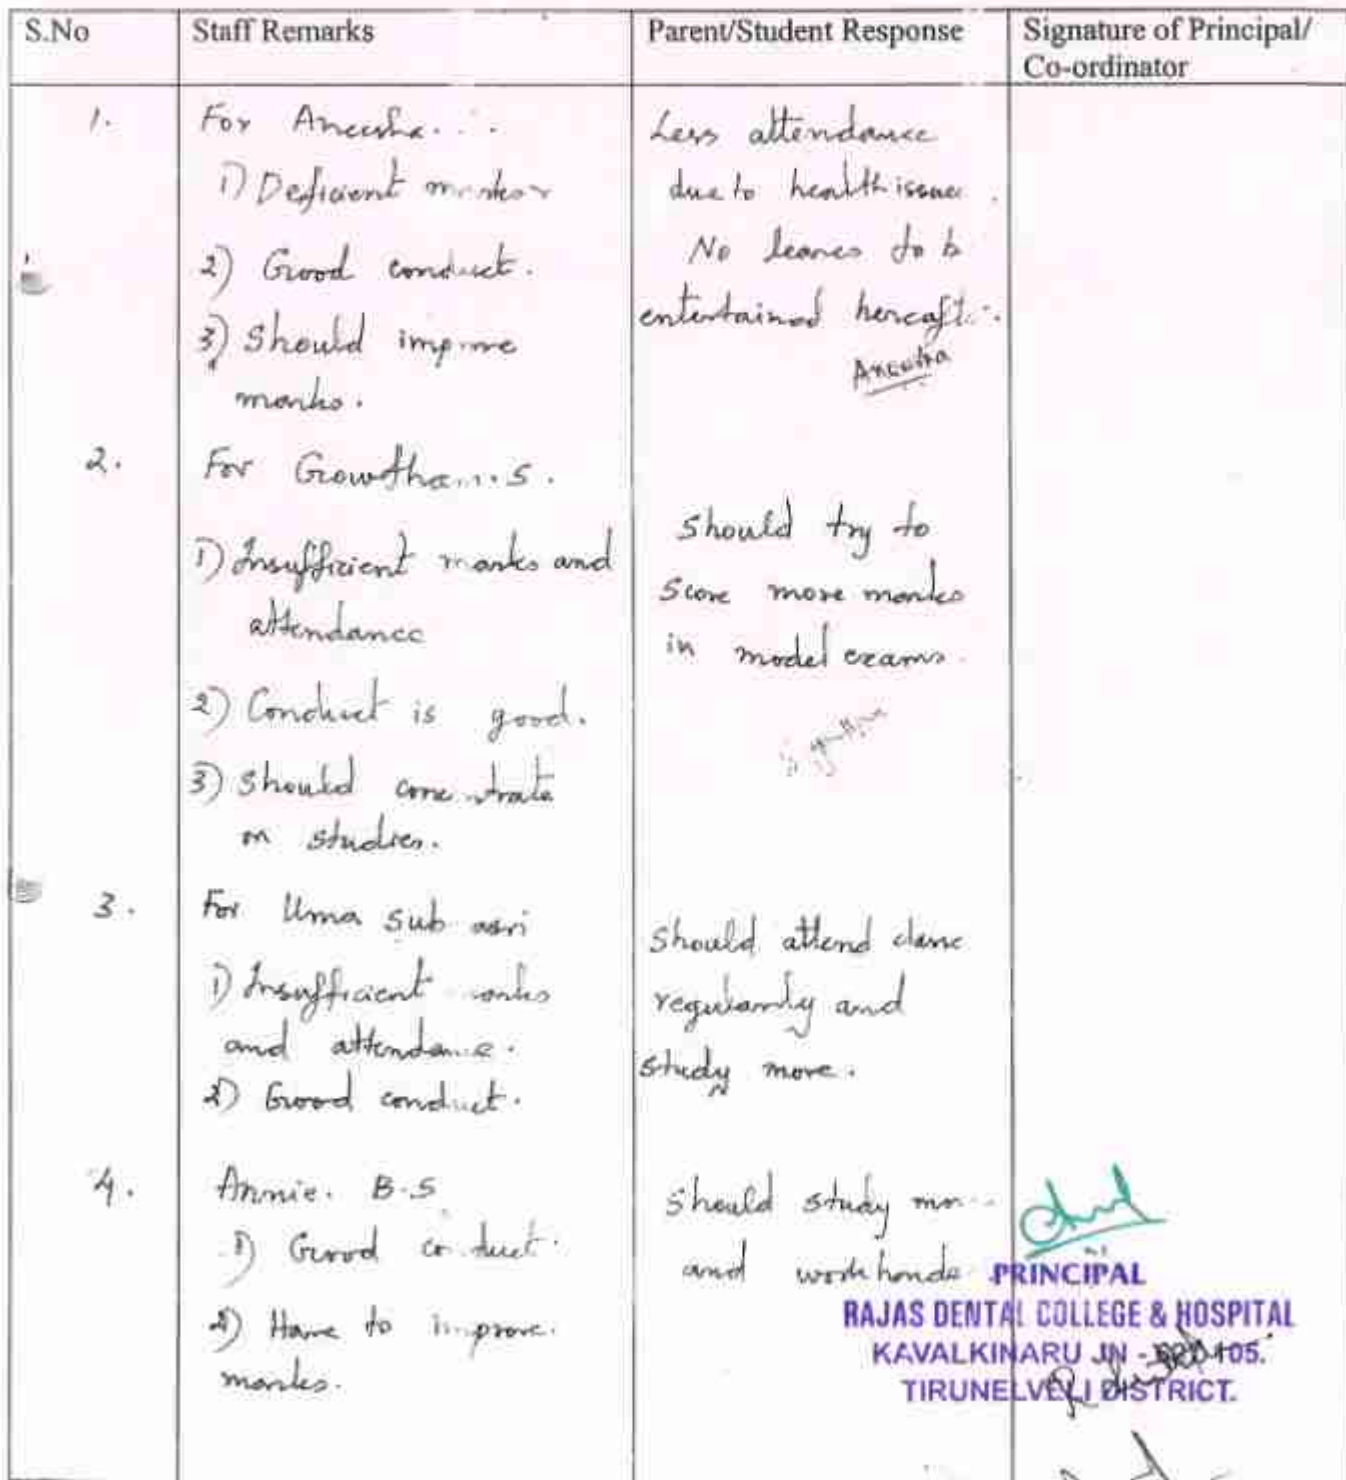 S.No Staff Remarks Parent/Student Response Signature of Principal/
Co-ordinator
1.
For Aneesha...
1) Deficient marks
2) Good conduct.
3) Should improve
marks.
Less attendance
due to health issue.
No leaves to b
entertained hereaft
Aneesha
2.
For Gowtham.S.
1) Insufficient marks and
attendance
2) Conduct is good.
3) Should concentrate
on studies.
Should try to
score more marks
in model exams.
3.
For Uma Sub
1) Insufficient marks
and attendance.
2) Good conduct.
Should attend class
regularly and
study more.
4.
Annie. B.S
1) Good conduct.
2) Have to improve.
marks.
Should study
and work
PRINCIPAL
RAJAS DENTAL COLLEGE & HOSPITAL
KAVALKINARU JN - 105.
TIRUNELVELI DISTRICT.